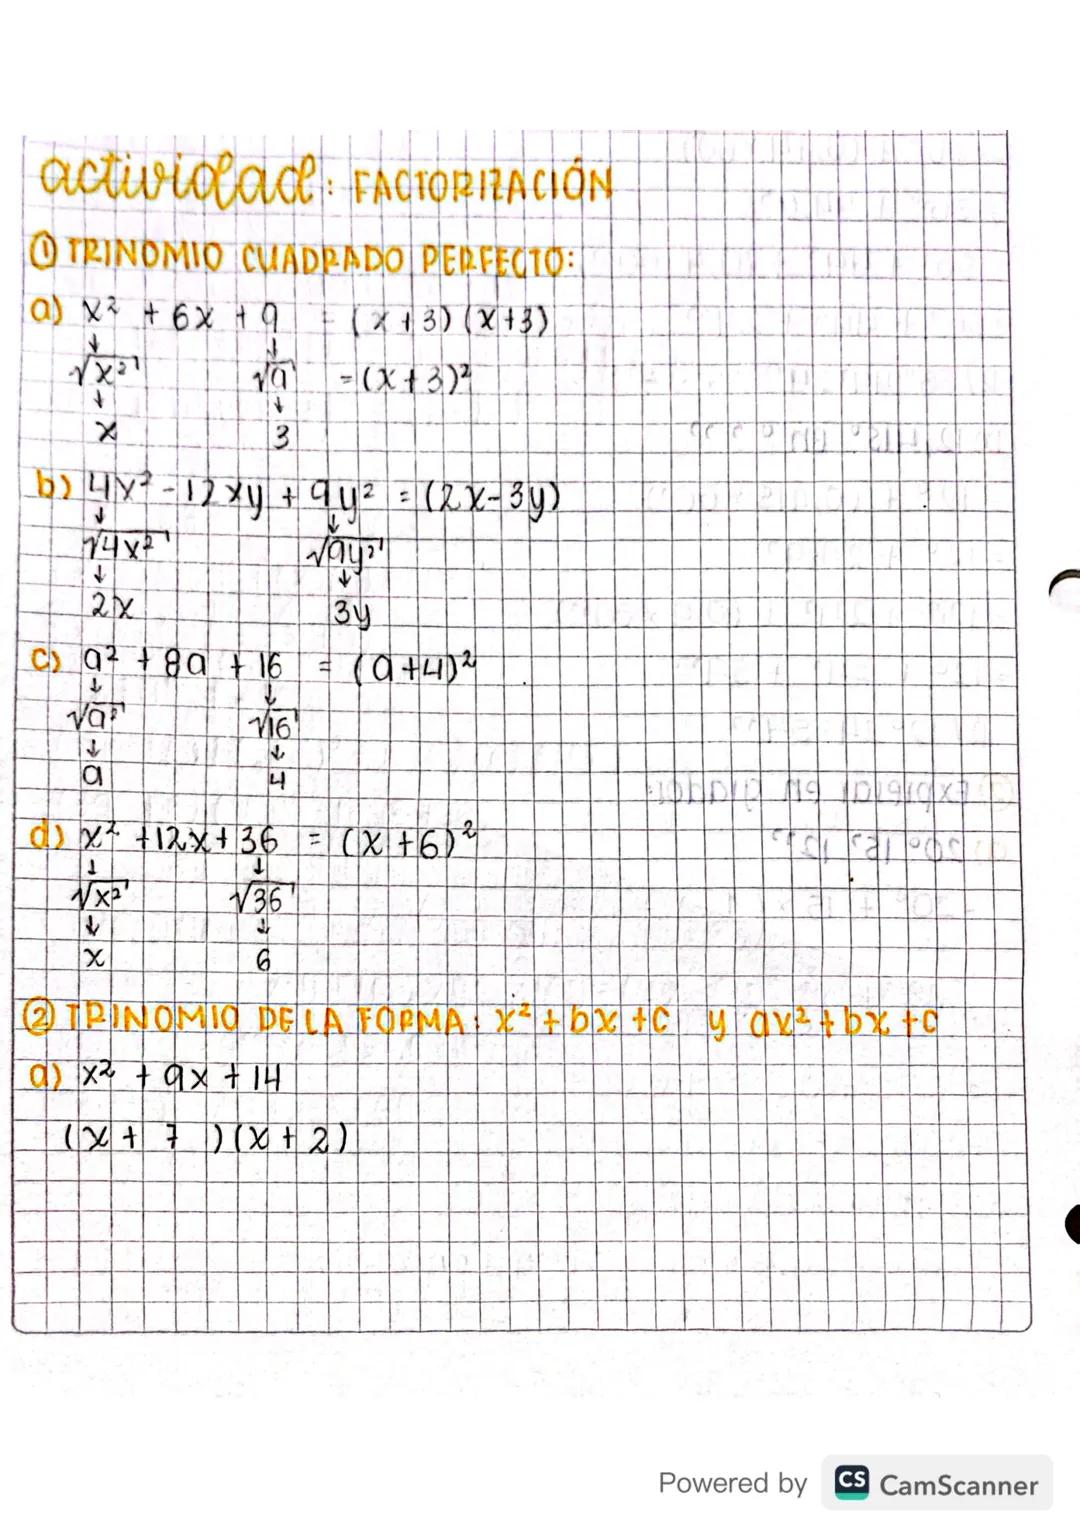 actividad: FACTORIZACIÓN
① TRINOMIO CUADRADO PERFECTO:
a) x² + 6x + 9 = (x+3)(x+3)
√x² √9 = (x+3)²
x 3
b) 4x² - 12xy + 9y² = (2x-3y)
√4x² √9y²
2x 3y
c) a² + 8a + 16 = (a+4)²
√a² √16
a 4
d) x² + 12x + 36 = (x+6)²
√x² √36
x 6
② TRINOMIO DE LA FORMA: x² + bx + c y ax² + bx + c
a) x² + 9x + 14
(x + 7 )(x + 2)
Powered by CS CamScanner